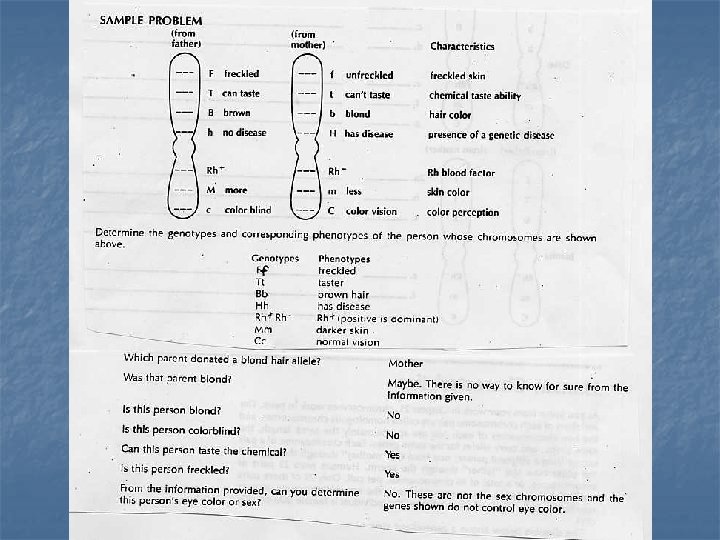 SAMPLE PROBLEM
(from father) (from mother) Characteristics
F freckled f unfreckled freckled skin
T can taste t can't taste chemical taste ability
B brown b blond hair color
h no disease H has disease presence of a genetic disease
Rh+ Rh− Rh blood factor
M more m less skin color
c color blind C color vision color perception
Determine the genotypes and corresponding phenotypes of the person whose chromosomes are shown
above.
Genotypes Phenotypes
Ff freckled
Tt taster
Bb brown hair
Hh has disease
Rh+ Rh− Rh+ (positive is dominant)
Mm darker skin
Cc normal vision
Which parent donated a blond hair allele? Mother
Was that parent blond? Maybe. There is no way to know for sure from the
information given.
Is this person blond? No
Is this person colorblind? No
Can this person taste the chemical? Yes
Is this person freckled? Yes
From the information provided, can you determine No. These are not the sex chromosomes and the
this person's eye color or sex? genes shown do not control eye color.